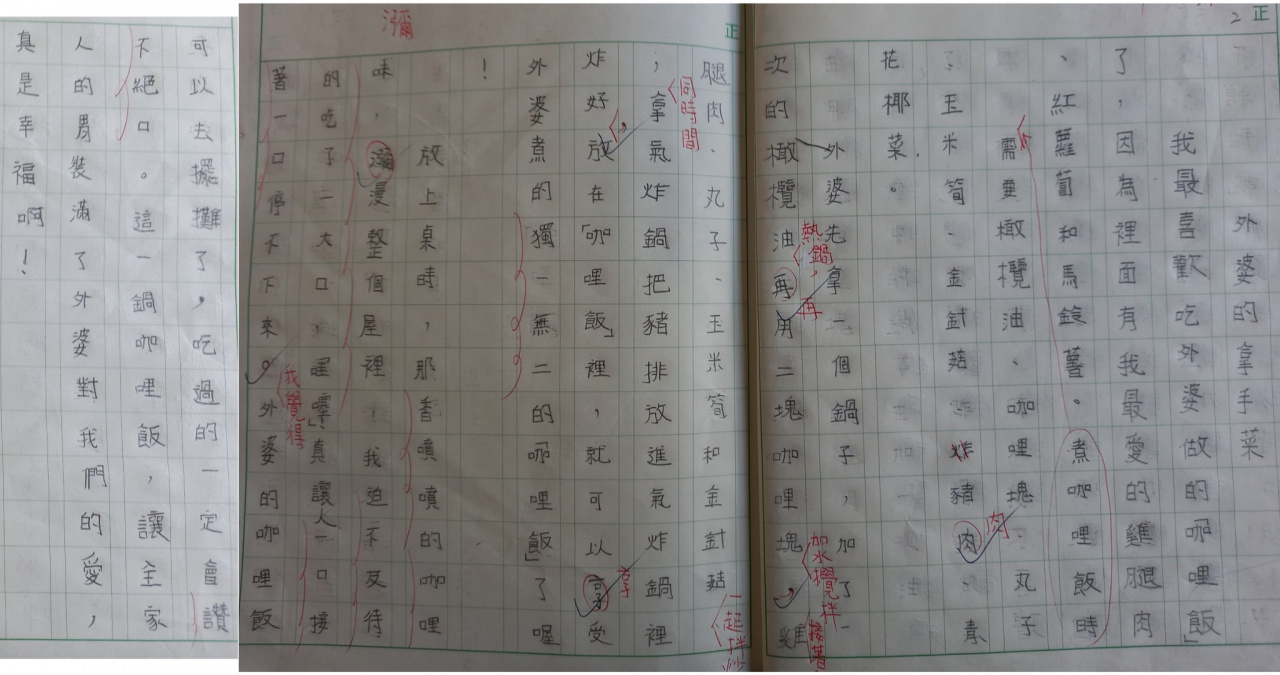 外婆的拿手菜
我最喜歡吃外婆做的「咖哩飯」
了，因為裡面有我最愛的雞腿肉
、紅蘿蔔和馬鈴薯。煮咖哩飯時
需要橄欖油、咖哩塊、丸子
、玉米筍、金針菇、炸豬肉、素
肉
花椰菜。
外婆先拿一個鍋子，加了一
次的橄欖油再用二塊咖哩塊，雞
熱鍋，再
加水攪拌
接著
腿肉、丸子、玉米筍和金針菇
一起拌炒
，拿氣炸鍋把豬排放進氣炸鍋裡
同時間
炸好放在「咖哩飯」裡，就可以享受
，
享
外婆煮的獨一無二的咖哩飯」了喔
！
放上桌時，那香噴噴的咖哩
味，瀰浸整個屋裡，我迫不及待
瀰
的吃了一大口，「哩！真讓人一口接
著一口停不下來。外婆的咖哩飯
我覺得
可以去擺攤了，吃過的一定會讚
不絕口。這一鍋咖哩飯，讓全家
人的胃裝滿了外婆對我們的愛，
真是幸福啊！
正
2
正